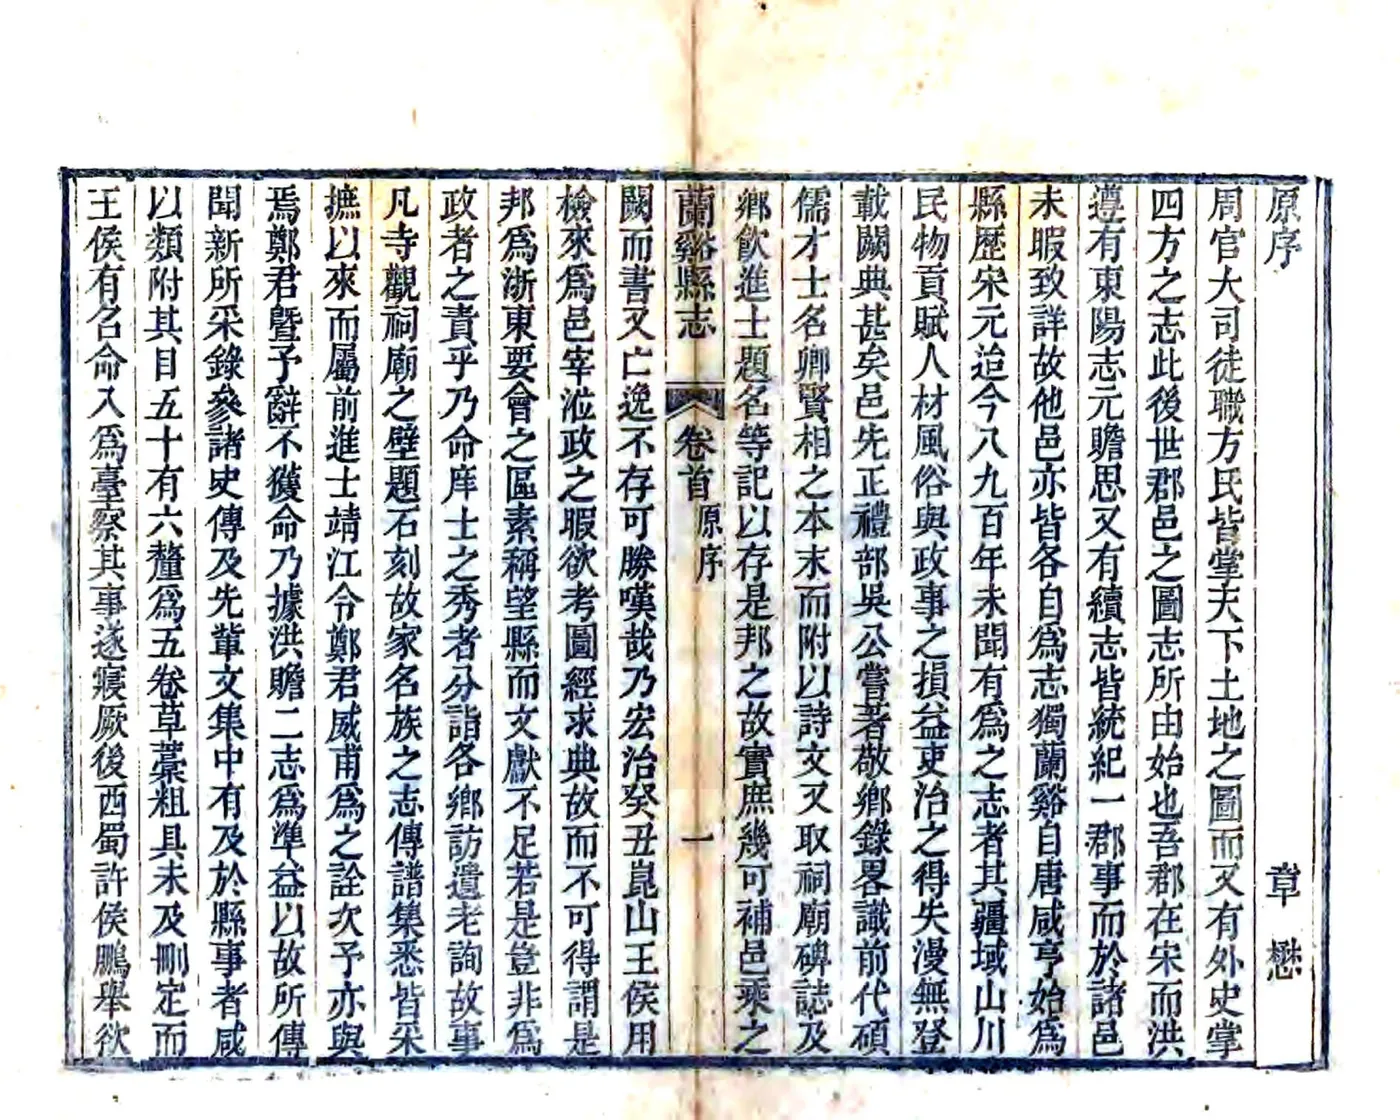 原序
章懋
周官大司徒職方氏皆掌天下土地之圖而又有外史掌
四方之志此後世郡邑之圖志所由始也吾郡在宋而洪
遵有東陽志元瞻思又有續志皆統紀一郡事而於諸邑
未暇致詳故他邑亦皆各自爲志獨蘭谿自唐咸亨始爲
縣歷宋元迨今八九百年未聞有爲之志者其疆域山川
民物貢賦人材風俗與政事之損益吏治之得失漫無登
載闕典甚矣邑先正禮部吳公嘗著敬鄉錄畧識前代碩
儒才士名卿賢相之本末而附以詩文又取祠廟碑誌及
鄉飲進士題名等記以存是邦之故實庶幾可補邑乘之
蘭谿縣志
卷首
原序
一
闕而書又亡逸不存可勝嘆哉乃宏治癸丑崑山王侯用
檢來爲邑宰涖政之暇欲考圖經求典故而不可得謂是
邦爲浙東要會之區素稱望縣而文獻不足若是豈非爲
政者之責乎乃命庠士之秀者分詣各鄉訪遺老詢故事
凡寺觀祠廟之壁題石刻故家名族之志傳譜集悉皆采
摭以來而屬前進士靖江令鄭君威甫爲之詮次予亦與
焉鄭君暨予辭不獲命乃據洪贍二志爲準益以故所傳
聞新所采錄參諸史傳及先軰文集中有及於縣事者咸
以類附其目五十有六釐爲五卷草藁粗具未及刪定而
王侯有名命入爲臺察其事遂寢厥後西蜀許侯鵬舉欲